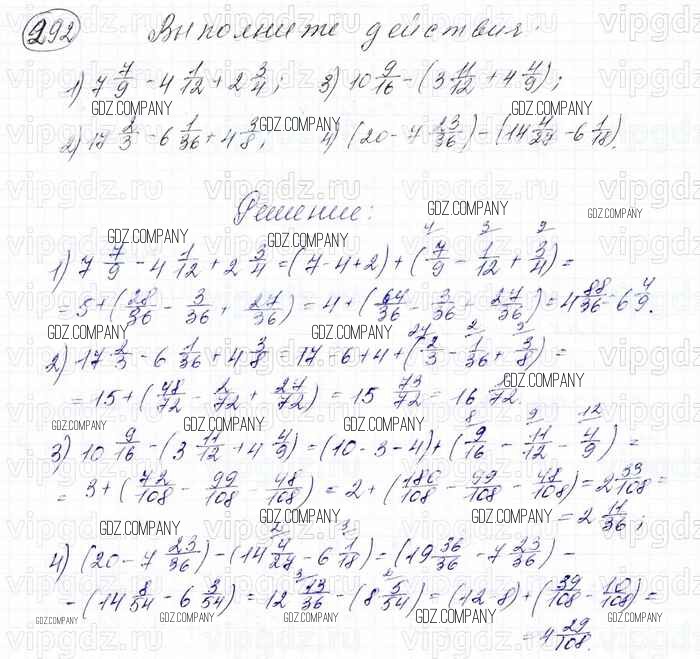 292 Выполните действия.
1) 7 7/9 - 4 1/12 + 2 3/4; 3) 10 9/16 - (3 11/12 + 4 4/9);
2) 17 2/3 - 6 1/36 + 4 3/8; 4) (20 - 7 23/36) - (14 4/27 - 6 1/18).
Решение:
1) 7 7/9 - 4 1/12 + 2 3/4 = (7-4+2) + (7/9 - 1/12 + 3/4) =
= 5 + (28/36 - 3/36 + 27/36) = 4 + (64/36 - 3/36 + 27/36) = 4 88/36 = 6 4/9.
2) 17 2/3 - 6 1/36 + 4 3/8 = 17 - 6 + 4 + (2/3 - 1/36 + 3/8) =
= 15 + (48/72 - 2/72 + 27/72) = 15 73/72 = 16 1/72.
3) 10 9/16 - (3 11/12 + 4 4/9) = (10 - 3 - 4) + (9/16 - 11/12 - 4/9) =
= 3 + (72/108 - 99/108 - 48/108) = 2 + (180/108 - 99/108 - 48/108) = 2 33/108 =
= 2 11/36;
4) (20 - 7 23/36) - (14 4/27 - 6 1/18) = (19 36/36 - 7 23/36) -
- (14 8/54 - 6 3/54) = 12 13/36 - (8 5/54) = (12-8) + (39/108 - 10/108) =
= 4 29/108.
GDZ.COMPANY
vipgdz.ru